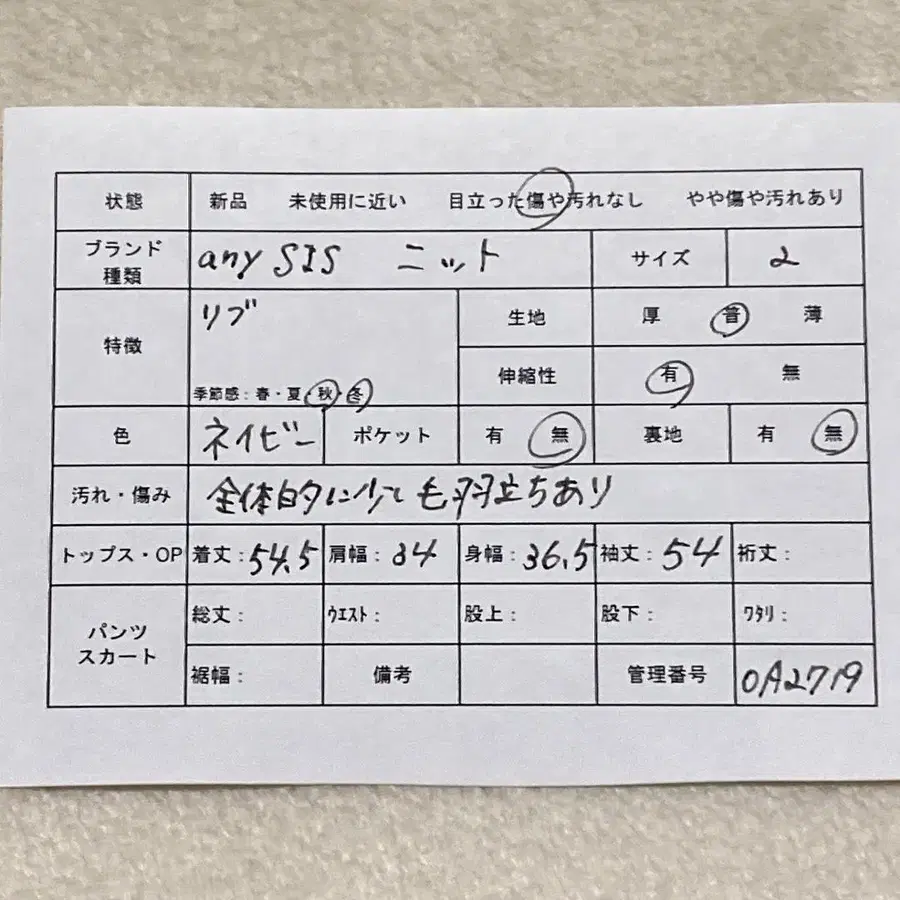 状態 新品 未使用に近い 目立った傷や汚れなし やや傷や汚れあり
ブランド 種類 any SIS ニット サイズ 2
特徴 リブ 生地 厚 普 薄
季節感：春・夏・秋・冬 伸縮性 有 無
色 ネイビー ポケット 有 無 裏地 有 無
汚れ・傷み 全体的に少して毛羽立ちあり
トップス・OP 着丈：54.5 肩幅：34 身幅：36.5 袖丈：54 裄丈：
パンツ スカート 総丈： ウエスト： 股上： 股下： ワタリ：
裾幅： 備考 管理番号 0A2719